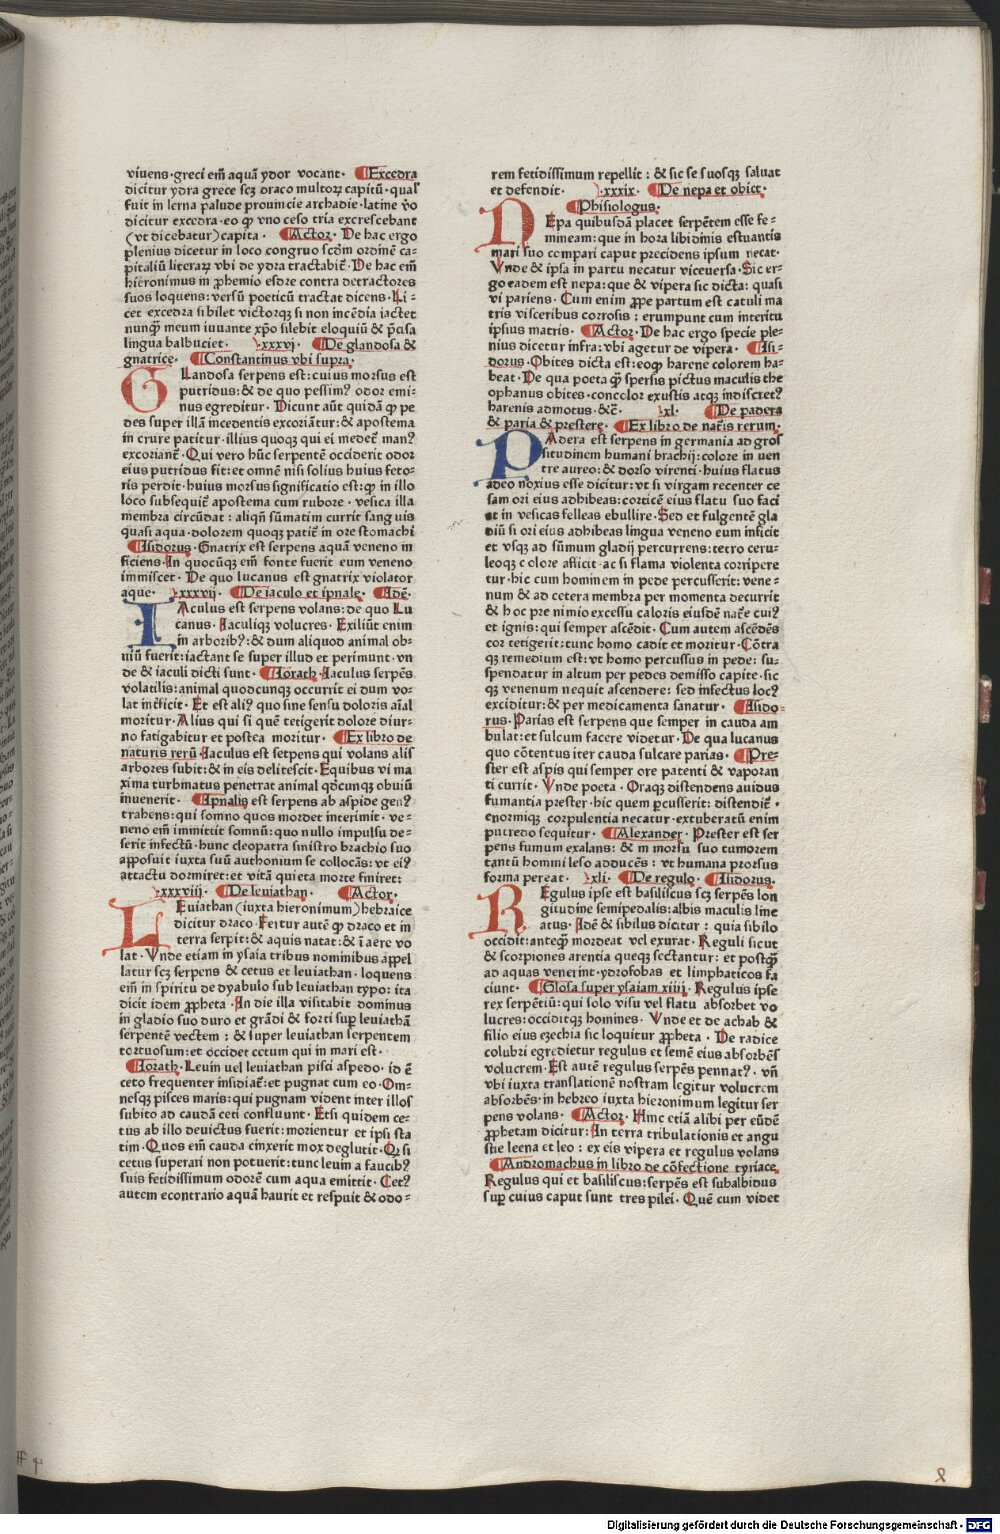 viuens·greci em̄ aquā ydor vocant· Excedra
dicitur ydra grece scꝫ draco multoꝝ capitū·qual'
fuit in lerna palude prouincie archadie·latine v̄o
dicitur excedra·eo ꝙ vno ceso tria excrescebant
(vt dicebatur)capita· Actor· De hac ergo
plenius dicetur in loco congruo scd̄m ordinē ca-
pitaliū literaꝝ vbi de ydra tractabit̄·De hac em̄
hieronimus in ꝓhemio esdre contra detractores
suos loquens:versū poeticū tractat dicens·Li-
cet excedra sibilet victorqꝫ si non incēdia iactet
nunqꝫ meum iuuante xp̄o silebit eloquiū & p̄cisa
lingua balbuciet· xxxvj· De glandosa &
gnatrice· Constantinus vbi supra·
GLandosa serpens est:cuius morsus est
putridus:& de quo pessimꝰ odor emi-
nus egreditur· Dicunt aūt quidā ꝙ pe
des super illā incedentis excoriātur:& apostema
in crure patitur·illius quoqꝫ qui ei medet̄ manꝰ
excoriant̄·Qui vero hūc serpentē occiderit odor
eius putridus fit:et omnē nisi solius huius feto-
ris perdit·huius morsus significatio est:ꝙ in illo
loco subsequit̄ apostema cum rubore·vesica illa
membra circūdat:aliqn̄ sūmatim currit sanguis
quasi aqua·dolorem quoqꝫ patit̄ in ore stomachi
Isidorus·Gnatrix est serpens aquā veneno in
ficiens·In quocūqꝫ em̄ fonte fuerit eum veneno
immiscet· De quo lucanus est gnatrix violator
aque· xxxvij· De iaculo et ipnale· Idē·
IAculus est serpens volans:de quo Lu
canus·Iaculiqꝫ volucres·Exiliūt enim
in arboribꝰ:& dum aliquod animal ob-
uiū fuerit:iactant se super illud et perimunt·vn
de & iaculi dicti sunt· Iorath·Iaculus serpēs
volatilis:animal quodcunqꝫ occurrit ei dum vo-
lat inēficit·Et est aliꝰ quo sine sensu doloris aīal
moritur·Alius qui si quē tetigerit dolore diur-
no fatigabitur et postea moritur· Ex libro de
naturis rerū·Iaculus est setpens qui volans alis
arbores subit:& in eis delitescit·Equibus vi ma
xima turbinatus penetrat animal qd̄cunqꝫ obuiū
inuenerit· Ipnalis est serpens ab aspide genꝰ
trahens:qui somno quos mordet interimit·ve-
neno em̄ immittit somnū:quo nullo impulsu de-
serit infectū·hunc cleopatra sinistro brachio suo
apposuit iuxta suū authonium se collocās:vt eiꝰ
attactu dormiret:et vitā quieta morte finiret:
xxxviij· De leuiathan· Actor·
LEuiathan(iuxta hieronimum)hebraice
dicitur draco·Fertur autē ꝙ draco et in
terra serpit:& aquis natat:& ī aere vo
lat·Vnde etiam in ysaia tribus nominibus appel
latur scꝫ serpens & cetus et leuiathan·loquens
em̄ in spiritu de dyabulo sub leuiathan typo:ita
dicit idem ꝓpheta·In die illa visitabit dominus
in gladio suo duro et grādi & forti suꝑ leuiathā
serpentē vectem:& super leuiathan serpentem
tortuosum:et occidet cetum qui in mari est·
Iorath·Leuin uel leuiathan pisci aspedo·id ē
ceto frequenter insidiat̄:et pugnat cum eo·Om-
nesqꝫ pisces maris:qui pugnam vident inter illos
subito ad caudā ceti confluunt·Etsi quidem ce-
tus ab illo deuictus fuerit:morientur et ipsi sta
tim·Quos em̄ cauda cinxerit mox deglutit·Qꝫ si
cetus superari non potuerit:tunc leuin a faucibꝰ
suis fetidissimum odorē cum aqua emittit·Cetꝰ
autem econtrario aquā haurit et respuit & odo-
rem fetidissimum repellit:& sic se suosqꝫ saluat
et defendit· xxxix· De nepa et obice·
Phisiologus·
NEpa quibusdā placet serpētem esse fe-
mineam:que in hora libidinis estuantis
mari suo compari caput precidens ipsum necat·
Vnde & ipsa in partu necatur viceuersa·Sic er-
go eadem est nepa:que & vipera sic dicta:quasi
vi pariens·Cum enim ꝓpe partum est catuli ma
tris visceribus corrosis:erumpunt cum interitu
ipsius matris· Actor·De hac ergo specie ple-
nius dicetur infra:vbi agetur de vipera· Isi-
dorus·Obites dicta est:eoqꝫ harene colorem ha-
beat·De qua poeta ꝙ spersis pictus maculis the
ophanus obites·concolor exustis atqꝫ indiscretꝰ
harenis admotus·&c̄· xl· De padera
& paria & prestere· Ex libro de nat̄is rerum·
PAdera est serpens in germania ad gros
situdinem humani brachij:colore in ven
tre aureo:& dorso virenti·huius flatus
adeo noxius esse dicitur:vt si virgam recenter ce
sam ori eius adhibeas:corticē eius flatu suo faci
at in vesicas felleas ebullire·Sed et fulgentē gla
diū si ori eius adhibeas lingua veneno eum inficit
et vsqꝫ ad sūmum gladij percurrens:tetro ceru-
leoqꝫ colore afficit·ac si flama violenta corripere
tur·hic cum hominem in pede percusserit:vene-
num & ad cetera membra per momenta decurrit
& hoc pre nimio excessu caloris eiusdē nat̄e cuiꝰ
et ignis:qui semper ascēdit·Cum autem ascēdēs
cor tetigerit:tunc homo cadit et moritur·Cōtra
qꝫ remedium est:vt homo percussus in pede:su-
spendatur in altum per pedes demisso capite·sic
qꝫ venenum nequit ascendere:sed infectus locꝰ
exciditur:& per medicamenta sanatur· Isido-
rus·Parias est serpens que semper in cauda am
bulat:et sulcum facere videtur·De qua lucanus
quo cōtentus iter cauda sulcare parias· Pre-
ster est aspis qui semper ore patenti & vaporan
ti currit·Vnde poeta·Oraqꝫ distendens auidus
fumantia prester·hic quem ꝑcusserit:distendit̄·
enormiqꝫ corpulentia necatur·extuberatū enim
putredo sequitur· Alexander·Prester est ser
pens fumum exalans:& in morsu suo tumorem
tantū homini leso adducēs:vt humana prorsus
forma pereat· xli· De regulo· Isidorus·
REgulus ipse est basiliscus scꝫ serpēs lon
gitudine semipedalis:albis maculis line
atus·Idē & sibilus dicitur:quia sibilo
occidit:anteqꝫ mordeat vel exurat·Reguli sicut
& scorpiones arentia queqꝫ sectantur:et postqꝫ
ad aquas venerint·ydrofobas et limphaticos fa
ciunt· Glosa super ysaiam xiiij·Regulus ipse
rex serpētiū:qui solo visu vel flatu absorbet vo
lucres:occiditqꝫ homines·Vnde et de achab &
filio eius ezechia sic loquitur ꝓpheta·De radice
colubri egredietur regulus et semē eius absorbēs
volucrem·Est autē regulus serpēs pennatꝰ·vn̄
vbi iuxta translationē nostram legitur volucrem
absorbēs·in hebreo iuxta hieronimum legitur ser
pens volans· Actor·Hinc etiā alibi per eūdē
ꝓphetam dicitur:In terra tribulationis et angu
stie leena et leo:ex eis vipera et regulus volans
Andromachus in libro de cōfectione tyriace
Regulus qui et basiliscus:serpēs est subalbidus
suꝑ cuius caput sunt tres pilei·Quē cum videt
Digitalisierung gefördert durch die Deutsche Forschungsgemeinschaft - DFG